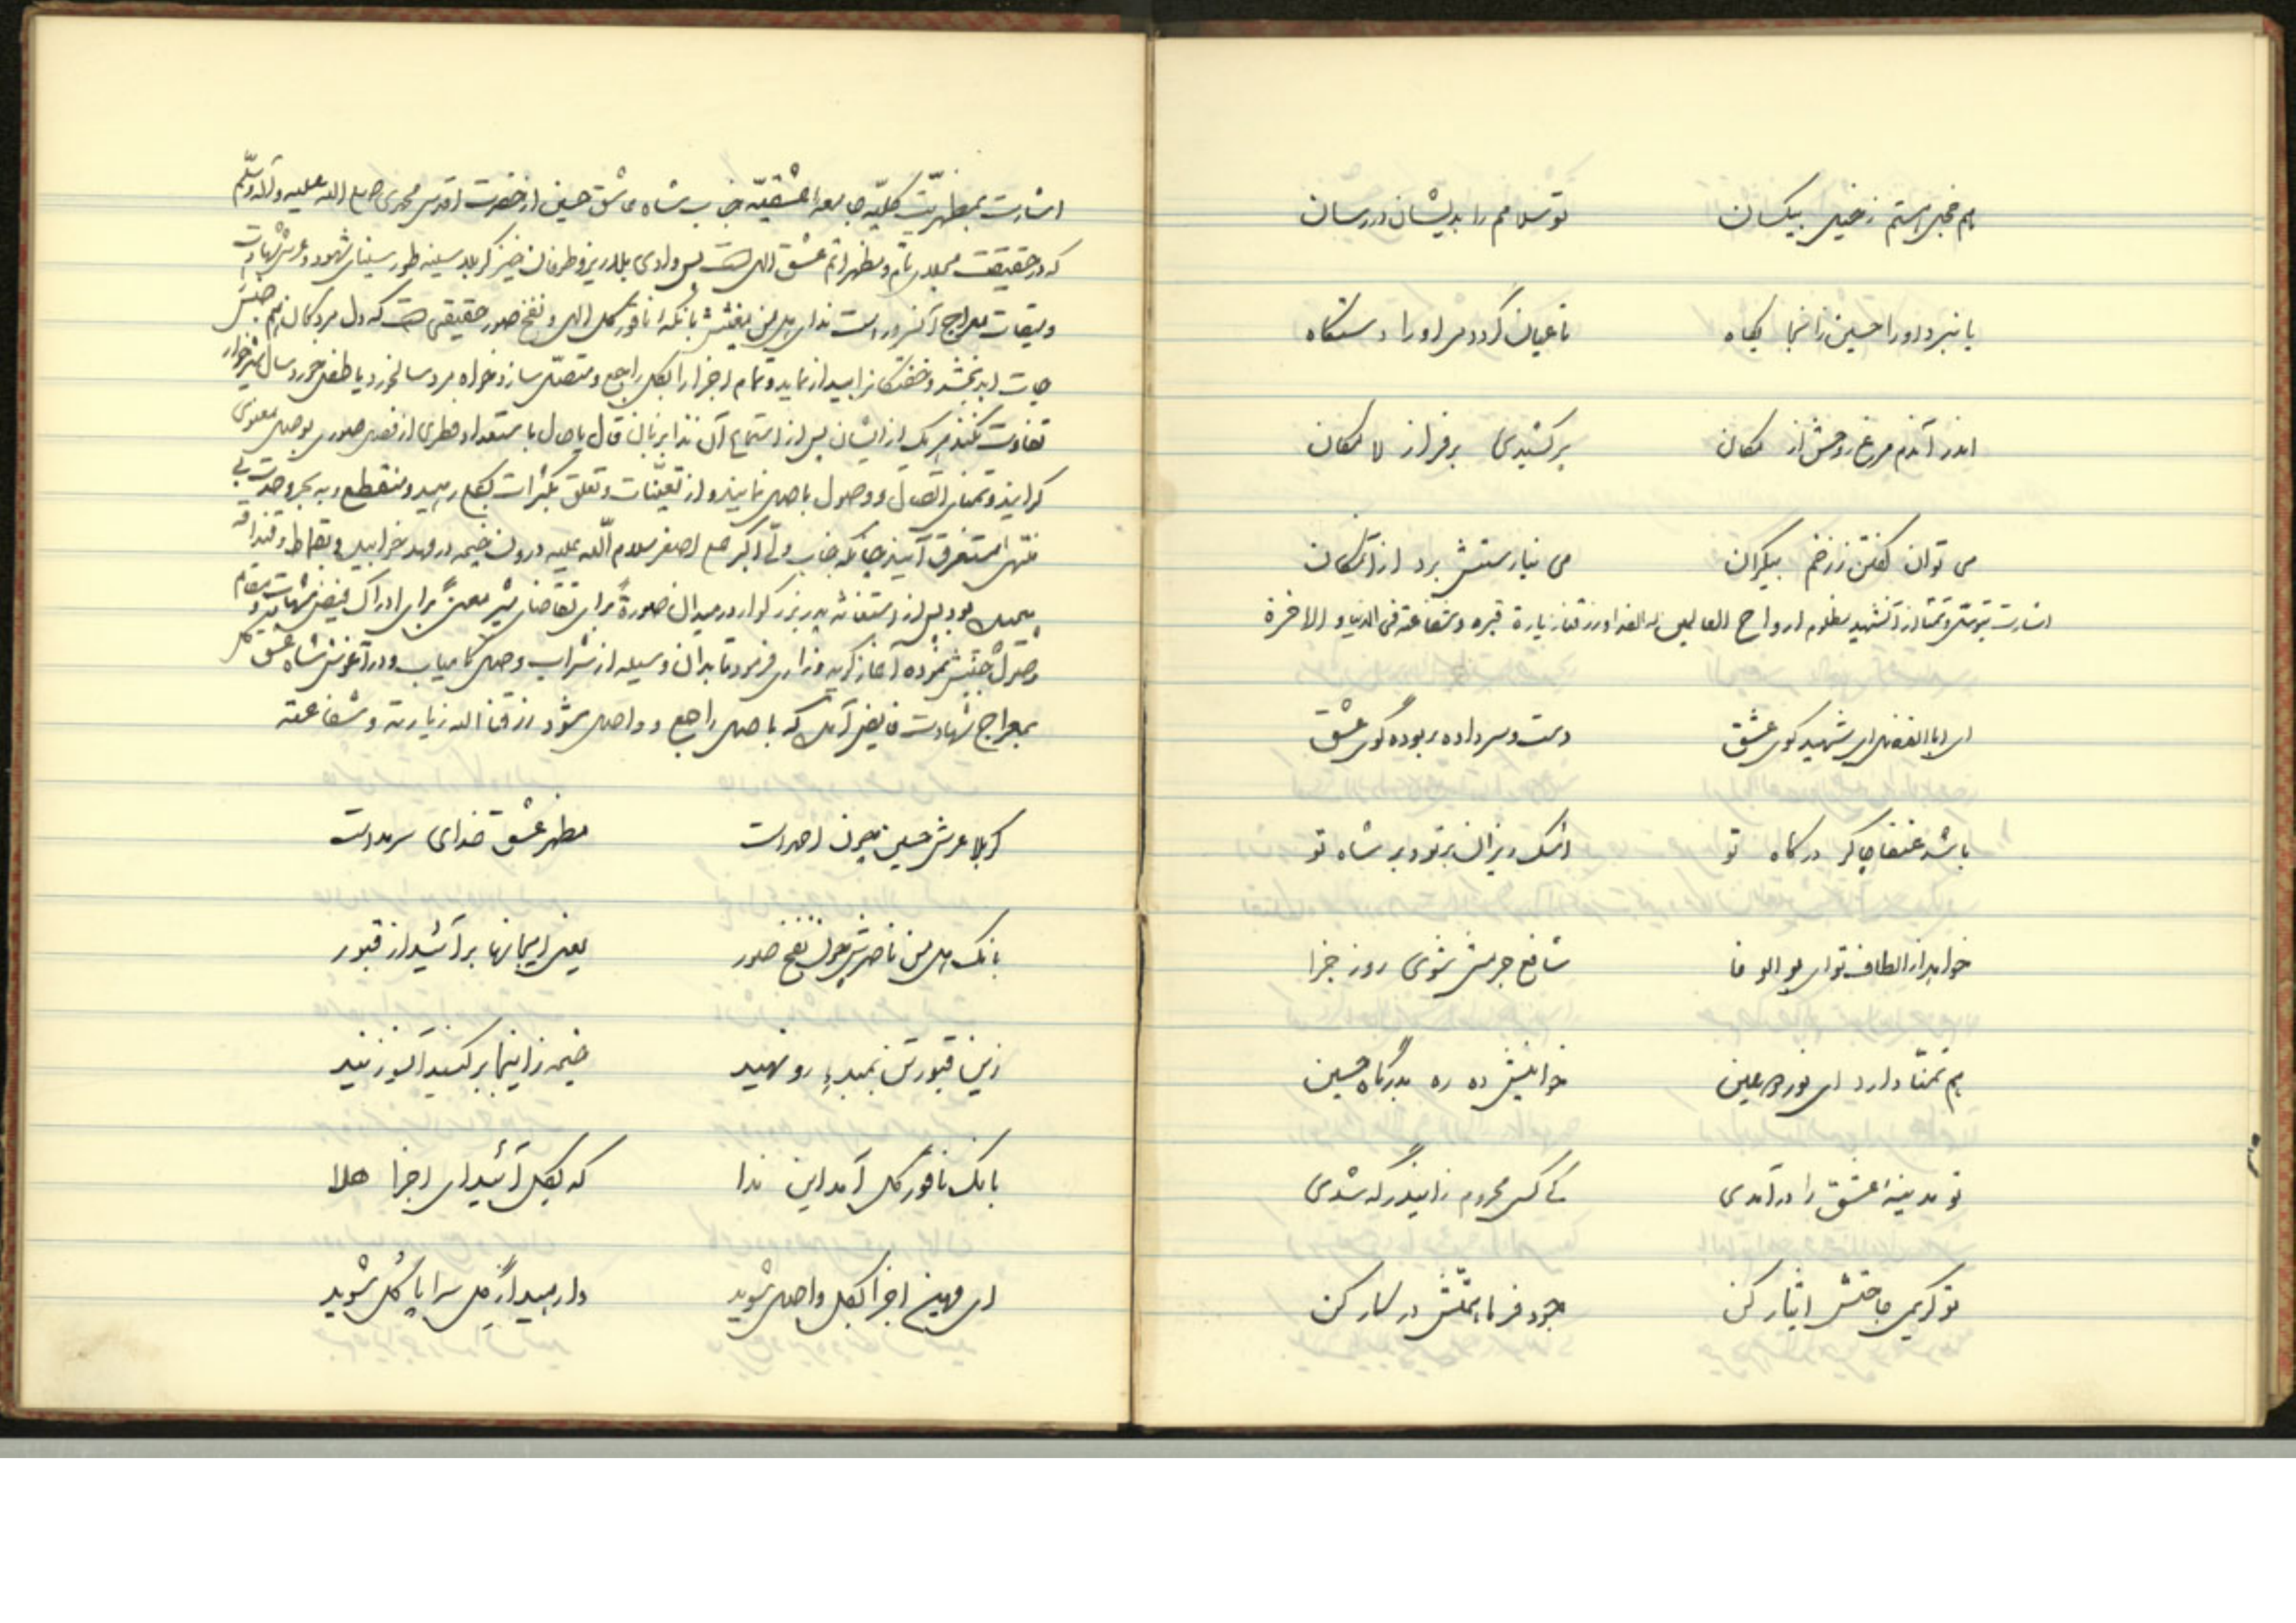 هم خجل هستم ز خیل بیکسان
تو سلامم را بدیشان در رسان
یا نبرد او را حسین زانجا بگاه
تا عیان گردد مر او را دستگاه
اندر آندم مرغ روحش از مکان
برکشیدی بر فراز لامکان
می توان گفتن ز زخم بیکران
می نیارستش برد از آنمکان
اشارت بتوسل و تمنا از آنشهید مظلوم ارواح العالمین له الفدا و رزقنا زیارة قبره و شفاعته فی الدنیا و الاخرة
ای اباالفضل ای شهید کوی عشق
دست و سر داده ربوده گوی عشق
باشد عنقا چاکر درگاه تو
اشک ریزان بر تو و بر شاه تو
خواهد از الطاف تو ای بوالوفا
شافع جرمش شوی روز جزا
هم تمنا دارد ای نور دو عین
خوانیش ده ره بدرگاه حسین
تو مدینهٔ عشق را در آمدی
کی کس محروم زایندر گه شدی
تو کریمی حاجتش ایثار کن
جود فرما همتش در کار کن
اشارت بمظهریّت کلیّه جامعه عشقیّه جناب شاه عاشق حسین از حضرت اقدس محمدی صلی الله علیه و آله و سلّم
که در حقیقت مجلای تام و مظهر اتم عشق الهی است پس وادی بلا ریز و طوفان خیز کربلا سینه طور سینای شهود و عرش شهادت
و میقات معراج آنسرور است ندای هل من مغیثش بانگ ناقور کل الهی و نفخ صور حقیقی است که دل مردگان
حیات ابد بخشد و خفتگانرا بیدار نماید و تمام اجزا را بکل راجع و متصل سازد خواه مرد سالخورد یا طفل خورد سال شیرخوار
تفاوت نکند هر یک از ایشان پس از استماع آن ندا بزبان قال یا حال با استعداد فطری از فصل صوری بوصل معنوی
گرایند و تمنای اتصال و وصول باصل نمایند و از تعیّنات و تعلق بکثرات بکلی رهید و منقطع و به بحر وحدت بی
منتهی مستغرق آیند چنانکه جناب ولی اکبر علی اصغر سلام اللّه علیه درون خیمه در مهد خوابیده و بقماط و قنداقه
بود پس از استغاثه پدر بزرگوار در میدان صورةً برای تقاضای شیر معنیً برای ادراک فیض شهادت
جنبش نموده آغاز گریه و زاری فرمود تا بدان وسیله از شراب وصل کامیاب و در آغوش شاه عشق
بمعراج شهادت فایض آید که باصل راجع و واصل شود رزقنا الله زیارته و شفاعته
کربلا عرش حسین بیچون احد است
مظهر عشق خدای سرمد است
بانگ هل من ناصرش چون نفخ صور
یعنی ایجانها برآئید از قبور
زین قبور تن بمبدء رو نهید
خیمه زاینجا برکنید آنسو زنید
بانگ ناقور کل آمد این ندا
که بکل آئید ای اجزا هلا
ای مهین اجزا بکل واصل شوید
وارهید از گل سراپا گل شوید